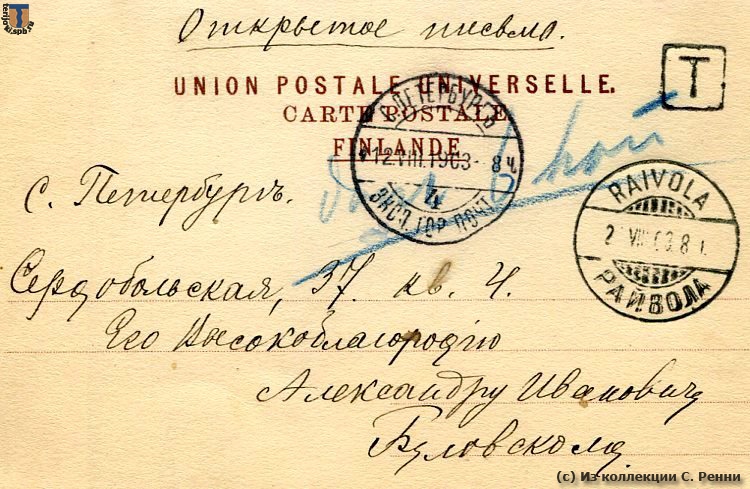 Открытое письмо.
UNION POSTALE UNIVERSELLE.
CARTE POSTALE
FINLANDE
T
С.ПЕТЕРБУРГЪ
12.VIII.1903 - 8 ч.
4
ЭКСП. ГОР. ПОЧТ.
RAIVOLA
РАЙВОЛА
С. Петербургъ.
Сердобольская, 37. кв. 4.
Его Высокоблагородію
Александру Ивановичу
(c) Из коллекции С. Ренни